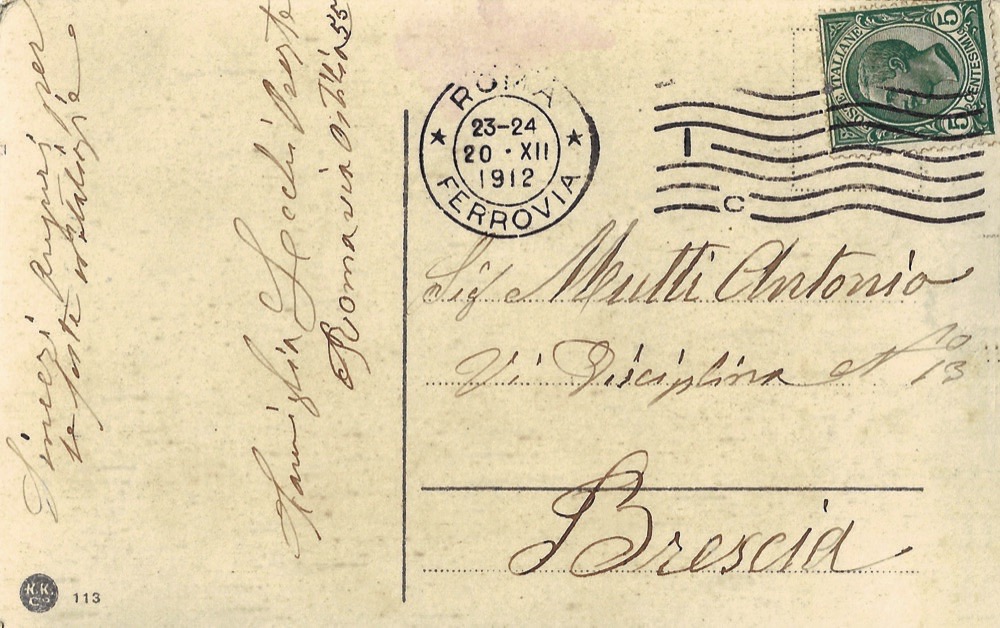 Sinceri Auguri per
le feste natalizie
Famiglia Zecchi Oreste
Roma via Ostilia 55
ROMA
23-24
20 · XII
1912
FERROVIA
POSTE ITALIANE
5
CENTESIMI
5
I
C
Sig Mutti Antonio
Vi Disciplina N 10
13
Brescia
K.K.
Co
113